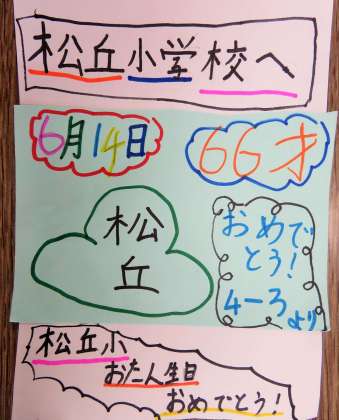 松丘小学校へ
6月14日
66才
松丘
おめでとう!
4-3より
松丘小
おた人生日
おめでとう!